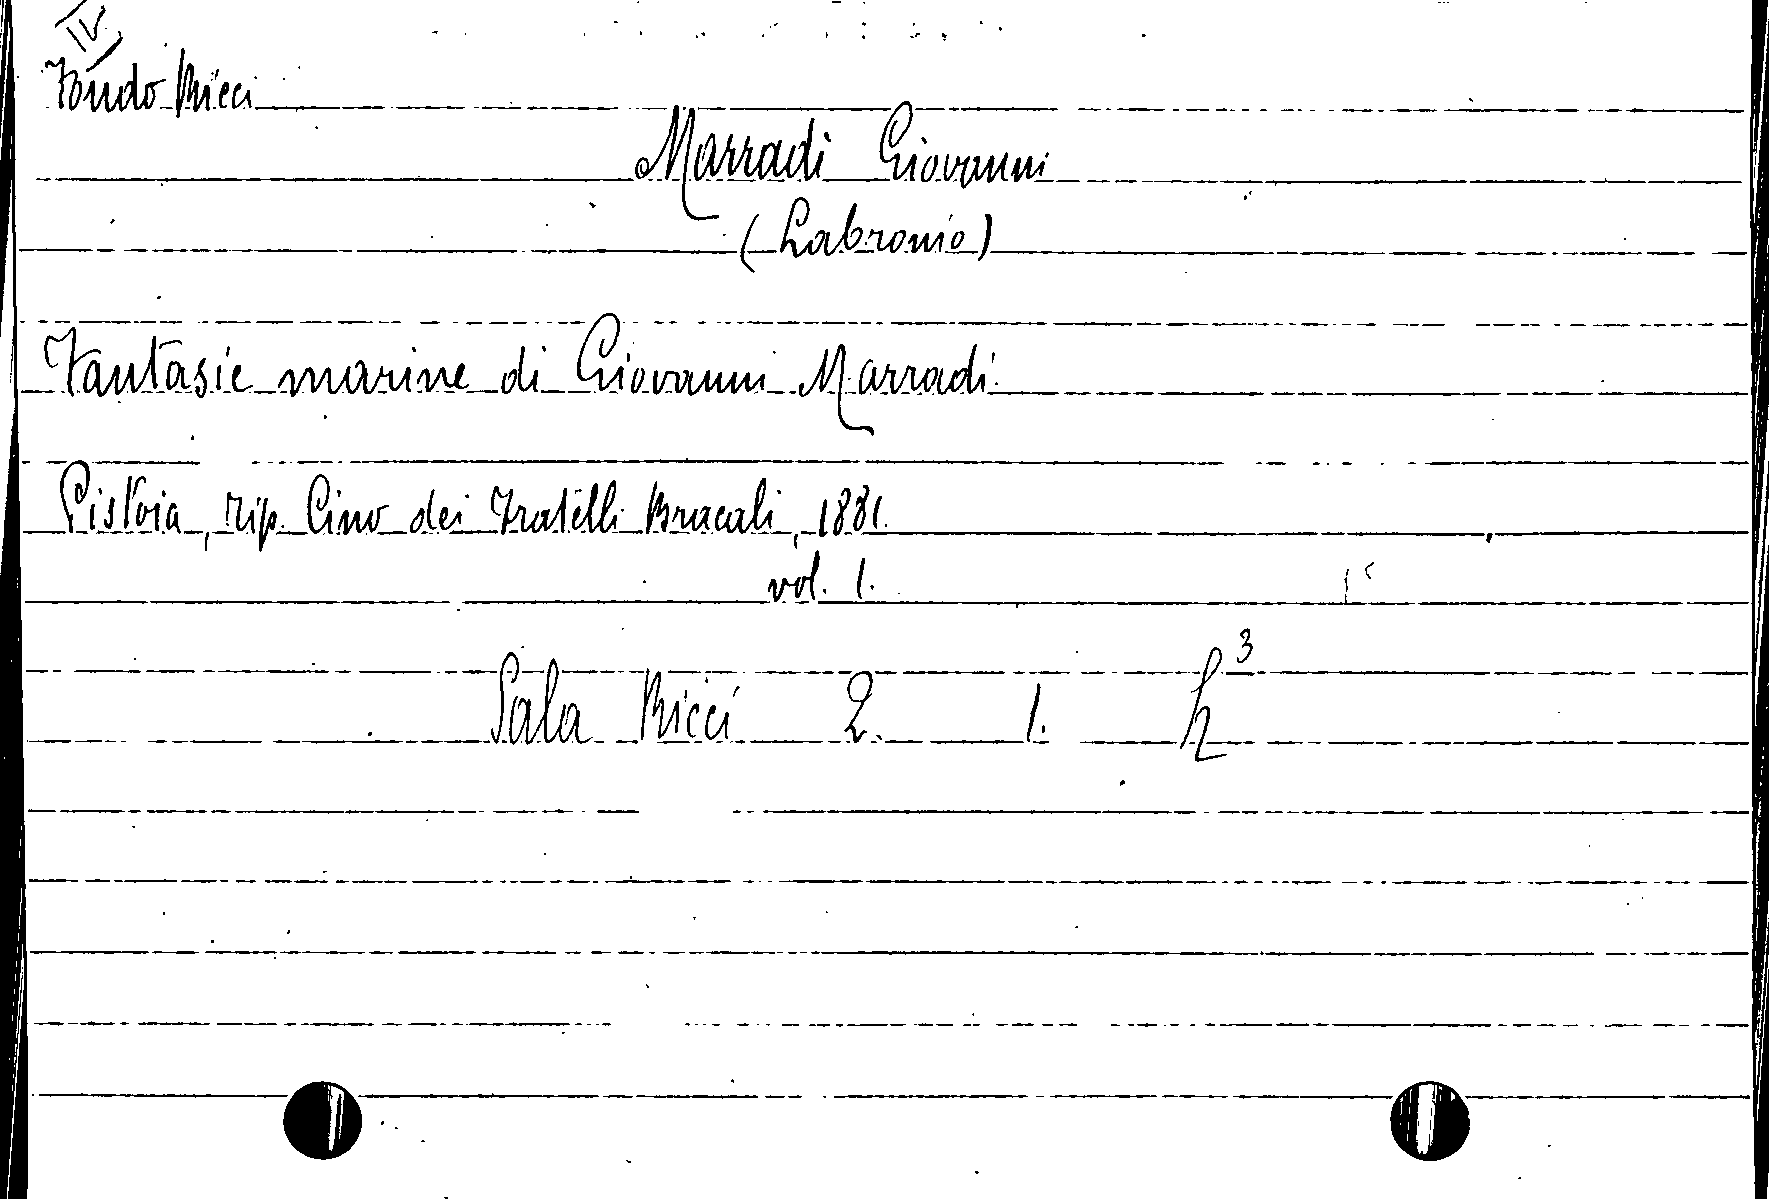 IV
Fondo Ricci
Marradi Giovanni
(Labronio)
Fantasie marine di Giovanni Marradi.
Pistoia, tip. Cino dei Fratelli Bracali, 1881.
vol. 1.
Sala Ricci 2. 1. h³